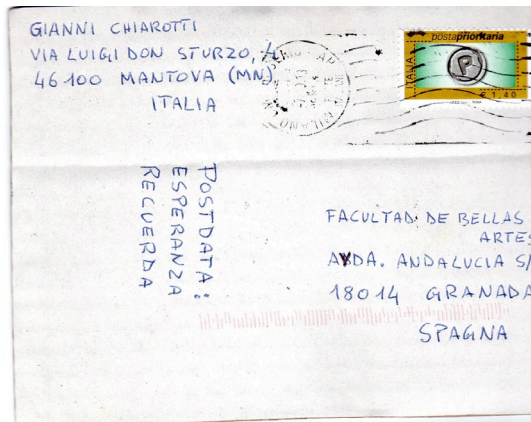 GIANNI CHIAROTTI
VIA LUIGI DON STURZO, 4
46100 MANTOVA (MN)
ITALIA
postaprioritaria
ITALIA
P
€ 1,40
MILANO
POSTDATA:
ESPERANZA
RECUERDA
FACULTAD DE BELLAS
ARTES
AVDA. ANDALUCIA S/
18014 GRANADA
SPAGNA